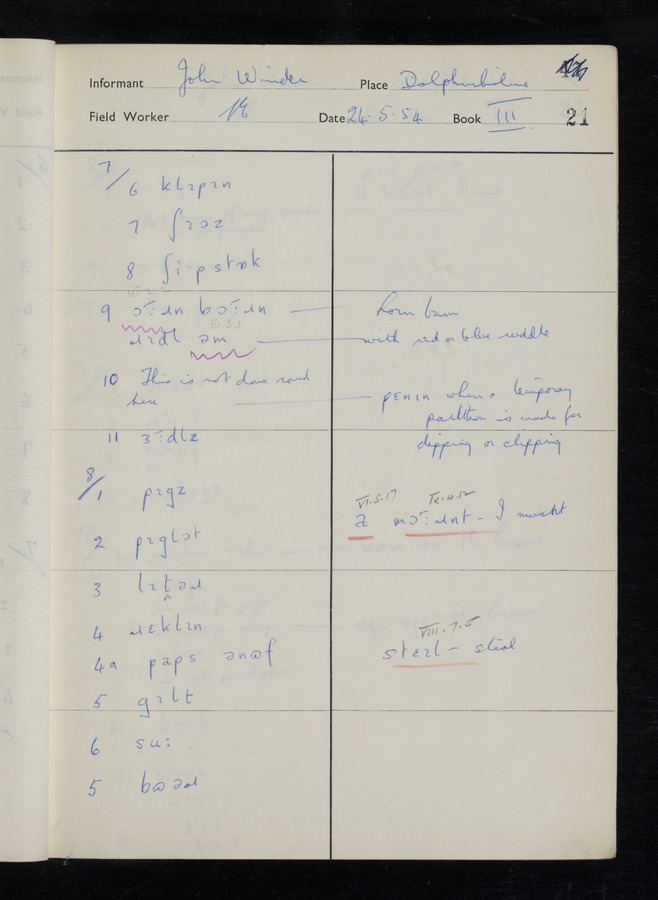 Informant John Winder Place Dolphinholme
Field Worker Date 24.5.54 Book III 21
7/6 klɪpɪn
7 ʃɪəz
8 ʃiːpstɒk
VI.2.2
9 ɔ̈ːɹn bɔ̈ːɹn — horn burn
III.3.1
ɹɪdl əm — with red or blue ruddle
10 This is not done round
here — pɛnɪn when a temporary
partition is made for
dipping or clipping
11 ɜːdlz
8/1 pɪgz
VI.5.17 IX.4.12
ə mɔ̈ːɹnt - I mustn't
2 pɪglət
3 lɪtəɹ
4 ɹɛklɪn
VIII.7.5
4a paps ənɷf
stɛɪl - steal
5 gɪlt
6 su:
5 bɷəɹ